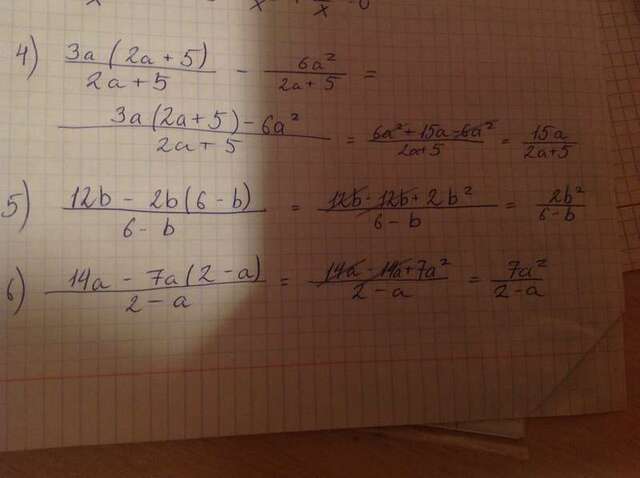 4) 3a(2a+5)/2a+5 - 6a²/2a+5 =
3a(2a+5)-6a²/2a+5 = 6a²+15a-6a²/2a+5 = 15a/2a+5
5) 12b - 2b(6-b)/6-b = 12b-12b+2b²/6-b = 2b²/6-b
6) 14a - 7a(2-a)/2-a = 14a-14a+7a²/2-a = 7a²/2-a